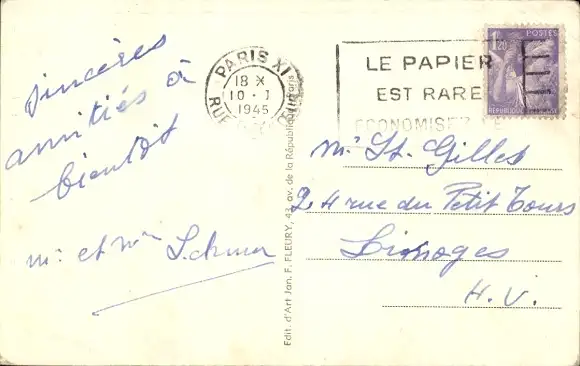 sincères
amitiés à
bientôt
mr et mme
PARIS XI
18 X
10 - 1
1945
RUE
LE PAPIER
EST RARE
ECONOMISEZ LE
1F20
POSTES
Mr St. Gilles
24 rue du Petit Tours
Limoges
H.V.
Edit. d'Art Jan. F. FLEURY, 43, av. de la République, Paris